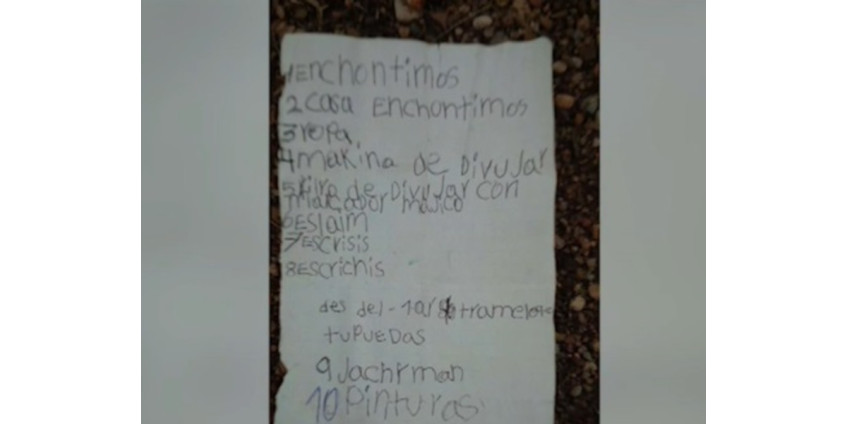 1Enchontimos
2 casa Enchontimos
3 ropa
4 makina de Divujar
5 de Divujar con
marcador májico
6 Eslaim
7 Escrisis
8 Escrichis
des del-1
tu PUEDas
9 Jachrman
10 Pinturas